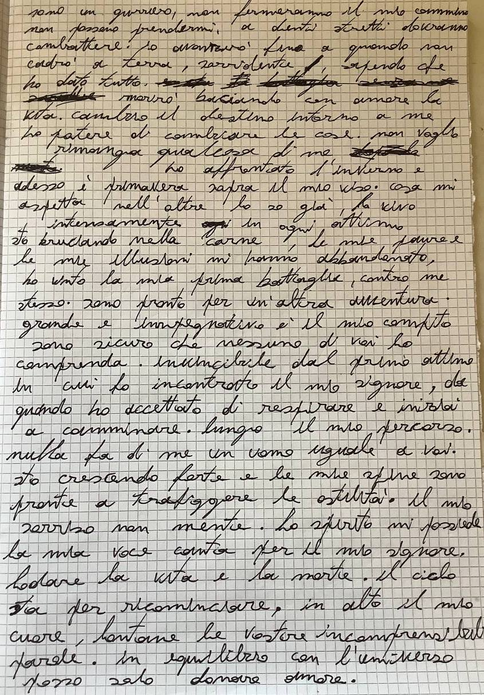 sono un guerriero, non fermeranno il mio cammino
non possono prendermi, a denti stretti dovranno
combattere. io avanzerò fino a quando non
cadrò a terra, sorridente, sapendo che
ho dato tutto.
morirò baciando con amore la
vita. cambio il destino intorno a me
ho potere di cambiare le cose. non voglio
rimanga qualcosa di me
ho affrontato l'inverno e
adesso è primavera sopra il mio viso. cosa mi
aspetta nell'oltre lo so già, lo vivo
intensamente in ogni attimo
sto bruciando nella carne, le mie paure e
le mie illusioni mi hanno abbandonato,
ho vinto la mia prima battaglia, contro me
stesso. sono pronto per un'altra avventura.
grande e impegnativo è il mio compito
sono sicuro che nessuno di voi lo
comprenda. invincibile dal primo attimo
in cui ho incontrato il mio signore, da
quando ho accettato di respirare e iniziai
a camminare. lungo il mio percorso.
nulla fa di me un uomo uguale a voi.
sto crescendo forte e le mie spine sono
pronte a trafiggere le ostilità. il mio
sorriso non mente. lo spirito mi possiede
la mia voce canta per il mio signore.
lodare la vita e la morte. il ciclo
sta per ricominciare, in alto il mio
cuore, lontane le vostre incomprensibili
parole. in equilibrio con l'universo
posso solo donare amore.